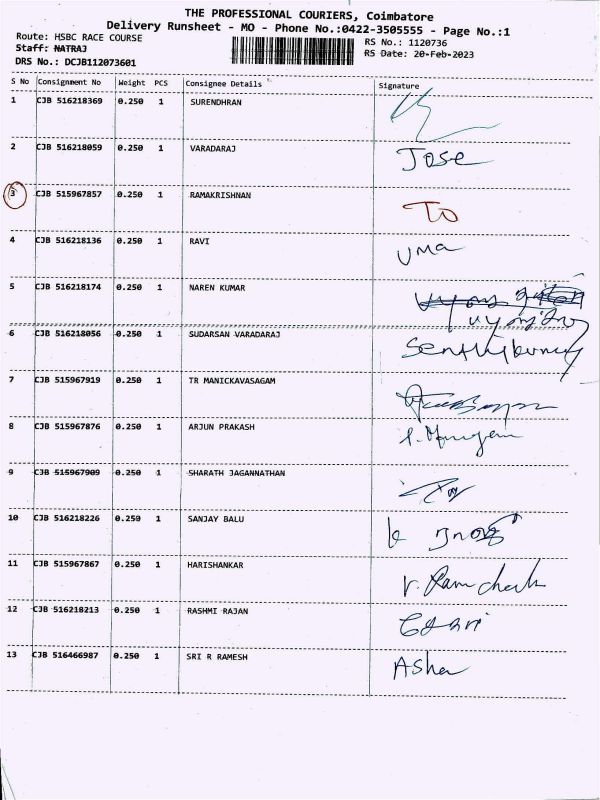 THE PROFESSIONAL COURIERS, Coimbatore
Delivery Runsheet - MO - Phone No.:0422-3505555 - Page No.:1
Route: HSBC RACE COURSE
RS No.: 1120736
Staff: NATRAJ
RS Date: 20-Feb-2023
DRS No.: DCJB112073601
S No Consignment No Weight PCS Consignee Details Signature
1 CJB 516218369 0.250 1 SURENDHRAN
2 CJB 516218059 0.250 1 VARADARAJ Jose
3 CJB 515967857 0.250 1 RAMAKRISHNAN TO
4 CJB 516218136 0.250 1 RAVI UMA
5 CJB 516218174 0.250 1 NAREN KUMAR
6 CJB 516218056 0.250 1 SUDARSAN VARADARAJ
7 CJB 515967919 0.250 1 TR MANICKAVASAGAM
8 CJB 515967876 0.250 1 ARJUN PRAKASH
9 CJB 515967909 0.250 1 SHARATH JAGANNATHAN
10 CJB 516218226 0.250 1 SANJAY BALU
11 CJB 515967867 0.250 1 HARISHANKAR
12 CJB 516218213 0.250 1 RASHMI RAJAN
13 CJB 516466987 0.250 1 SRI R RAMESH Asha